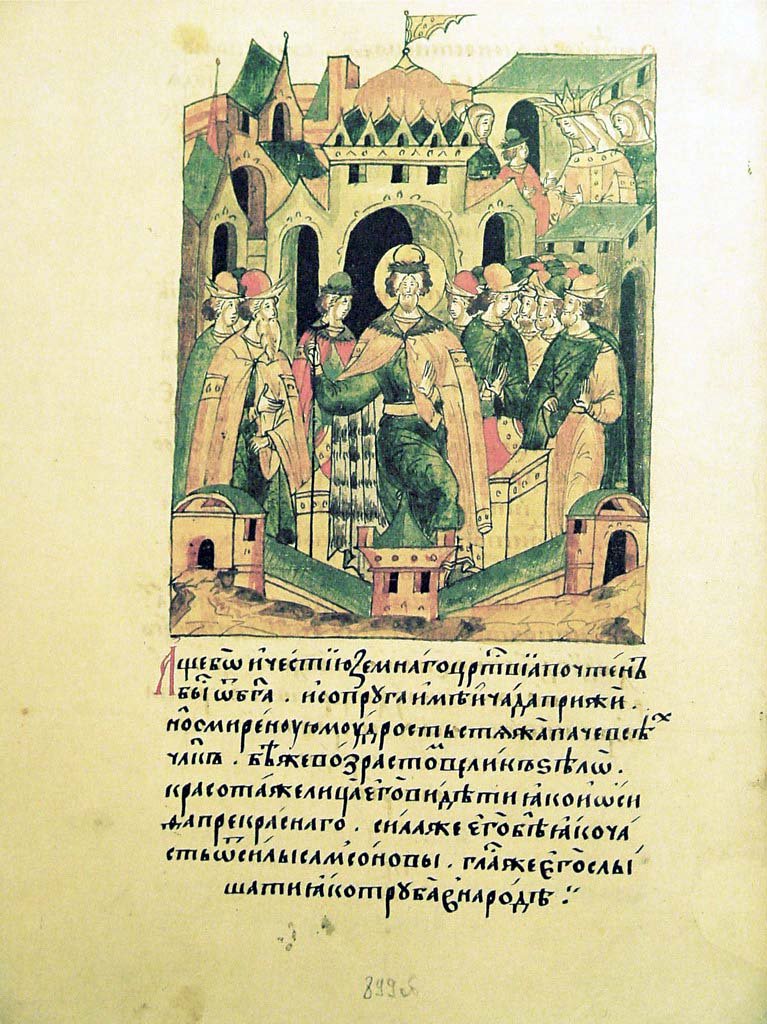 Аще бѡ и честїю земнаго црⷭ҇твїѧ почтенъ
бы ѿ бг҃а . и сопруга имѣѝ чада прижи .
но смиреноую моудрость стѧжа паче всѣⷯ
члк҃ъ . бѣ же возрастоⷨ великъ ѕѣлѡ .
красота же лица его видѣти ꙗко иѡси
фа прекраснаго . сила же его бѣ ꙗко ча
сть ѿ силы самсоновы . глⷭ҇а же его слы
шати ꙗко труба в народѣ :
899 об